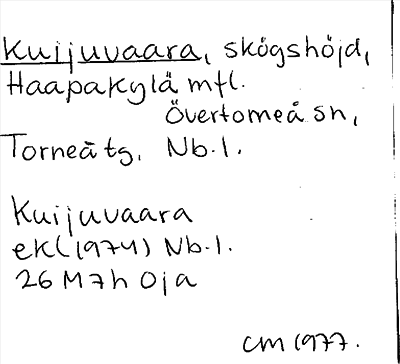 Kuijuvaara, skogshöjd,
Haapakylä mfl.
Övertorneå sn,
Torneå tg. Nb.l.
Kuijuvaara
ekl (1974) Nb.l.
26 M 7h Oja
CM 1977.